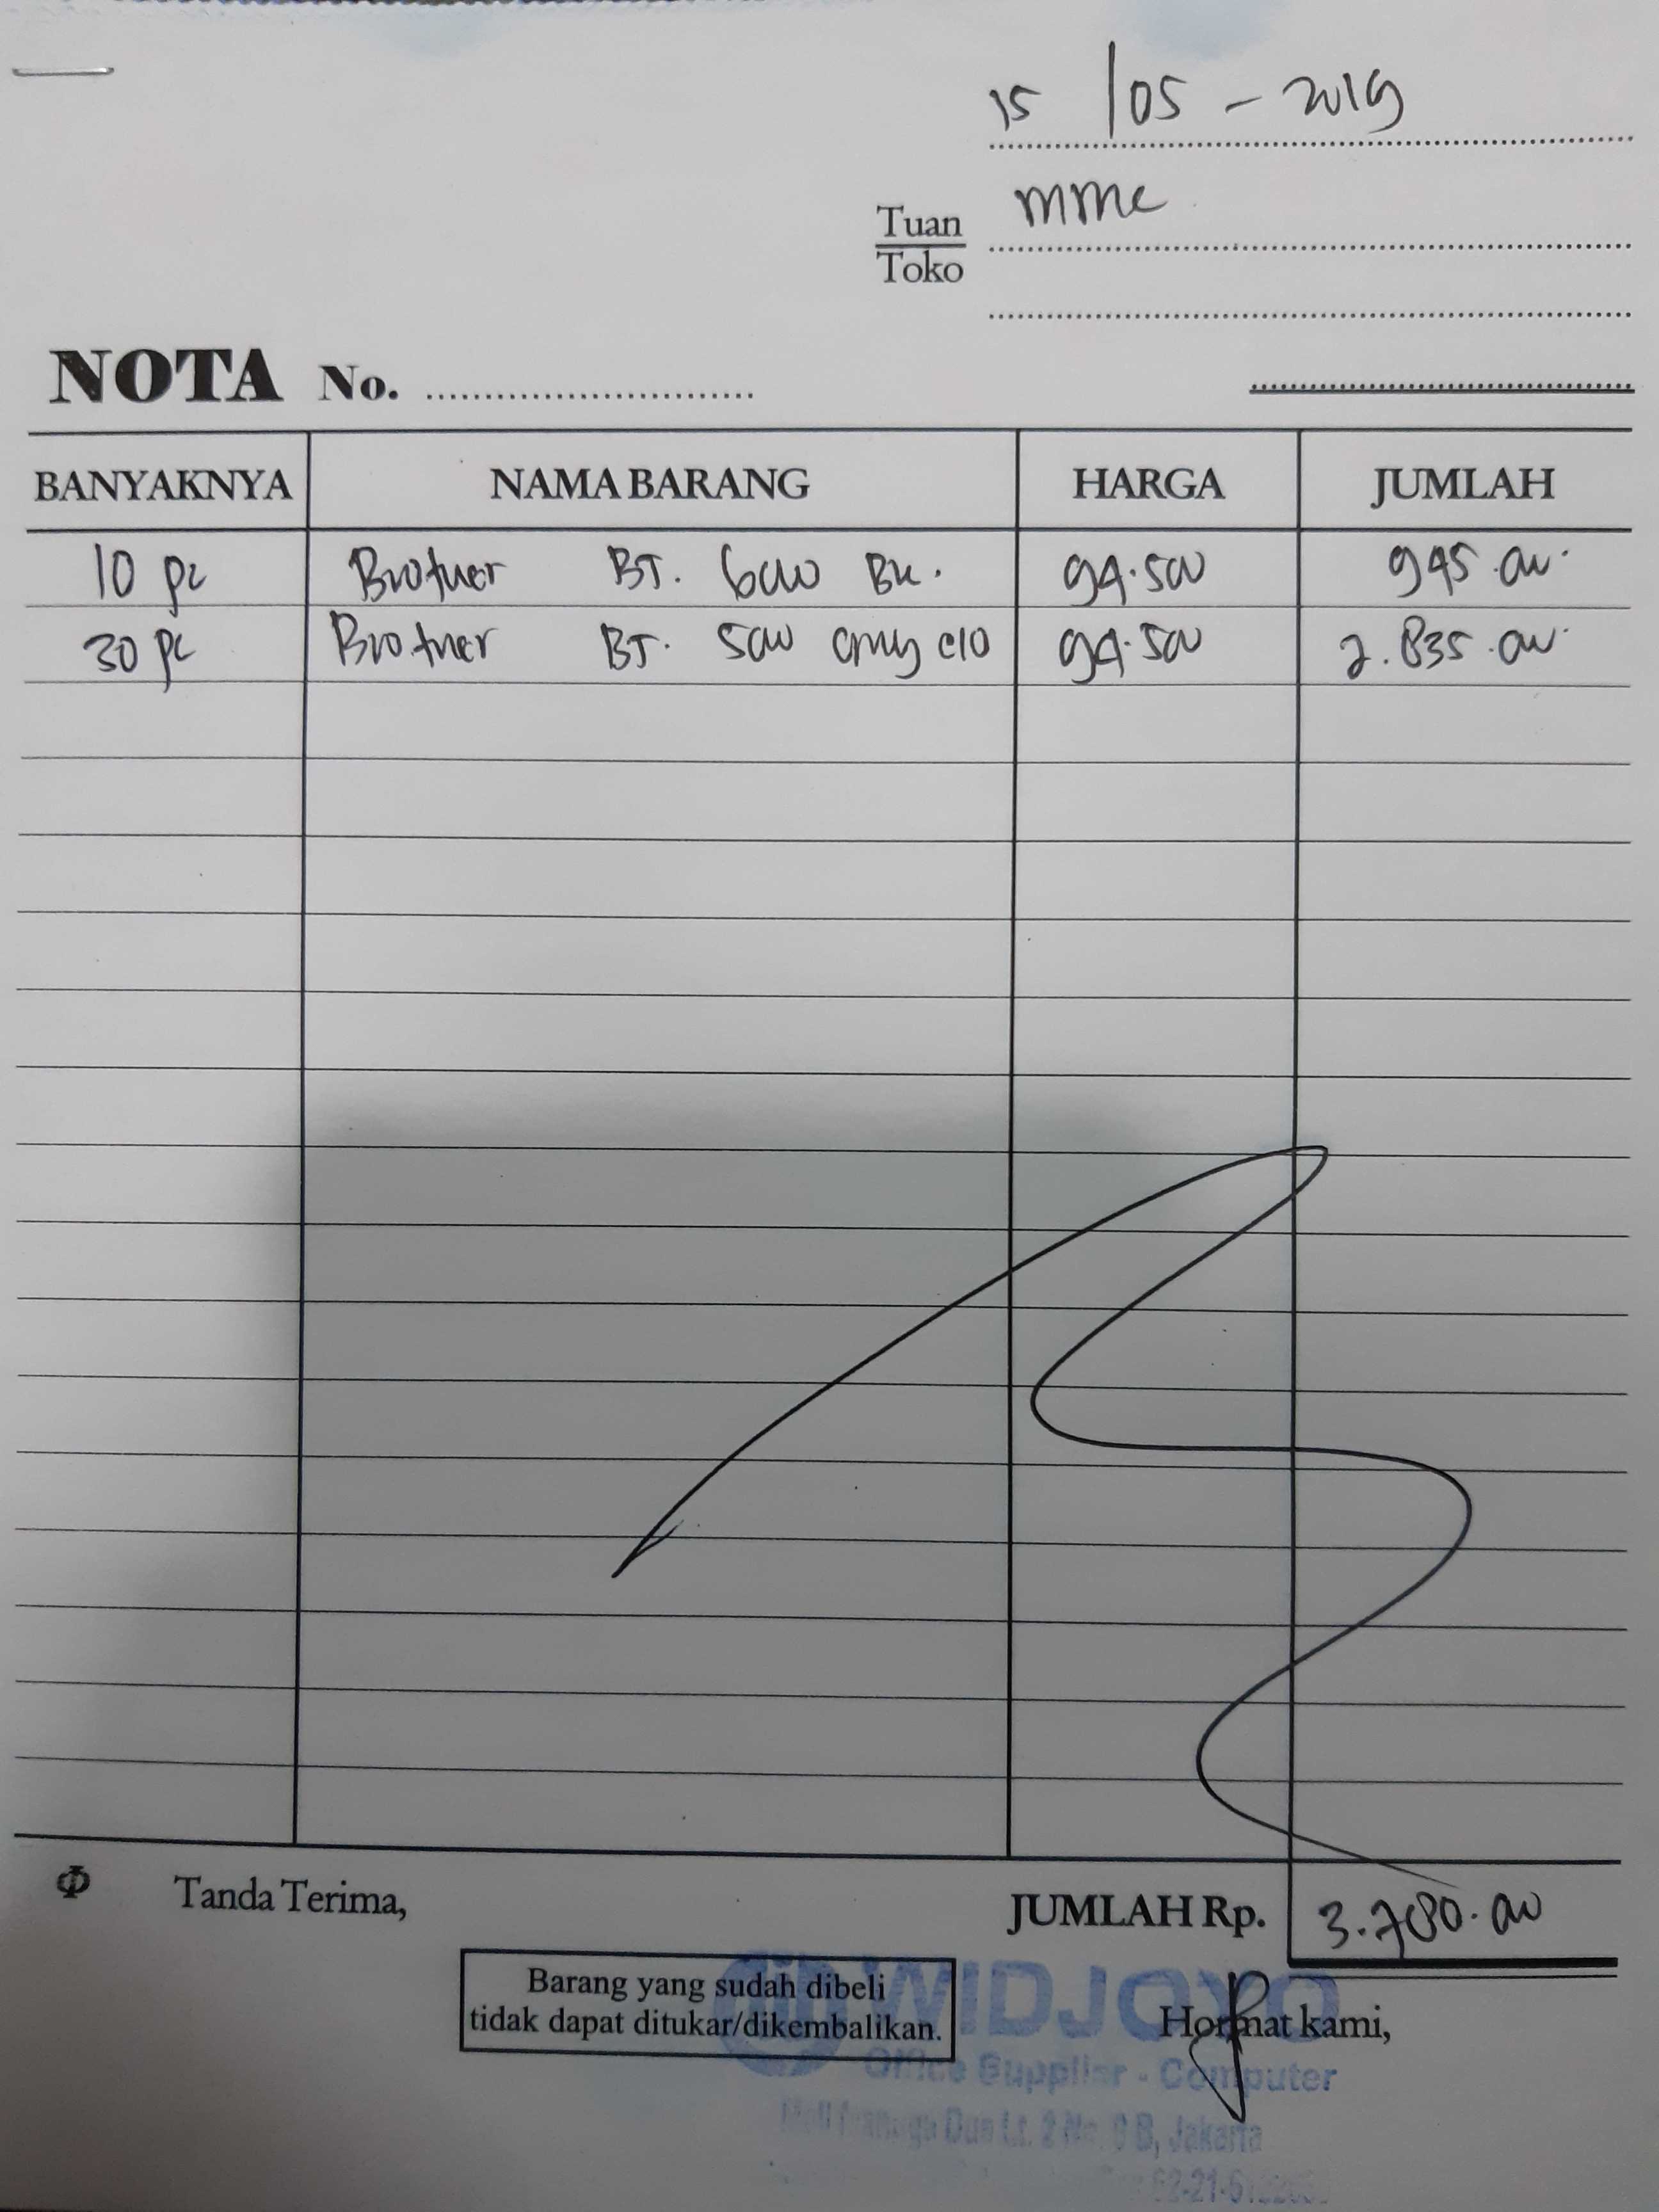 15 /05 - 2019
Tuan
Toko
mmc
NOTA No.
BANYAKNYA NAMA BARANG HARGA JUMLAH
10 pc Brother BT. 6000 BK. 94.500 945.000
30 pc Brother BT. 5000 cmy @10 94.500 2.835.000
Tanda Terima, JUMLAH Rp. 3.780.000
Barang yang sudah dibeli
tidak dapat ditukar/dikembalikan.
Hormat kami,
WIDJOYO
Office Supplier - Computer
Dua Lt. 2 No. B, Jakarta